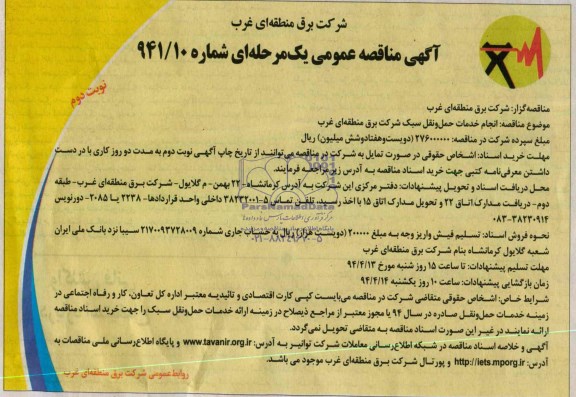 شرکت برق منطقه‌ای غرب
آگهی مناقصه عمومی یک‌مرحله‌ای شماره ۹۴۱/۱۰
نوبت دوم
مناقصه‌گزار: شرکت برق منطقه‌ای غرب
موضوع مناقصه: انجام خدمات حمل‌ونقل سبک شرکت برق منطقه‌ای غرب
مبلغ سپرده شرکت در مناقصه: ۲۷۶۰۰۰۰۰۰ (دویست‌وهفتادوشش میلیون) ریال
مهلت خرید اسناد: اشخاص حقوقی در صورت تمایل به شرکت در مناقصه می‌توانند از تاریخ چاپ آگهی نوبت دوم به مدت دو روز کاری با در دست
داشتن معرفی‌نامه کتبی جهت خرید اسناد مناقصه به آدرس زیر مراجعه فرمایند.
محل دریافت اسناد و تحویل پیشنهادات: دفتر مرکزی این شرکت به آدرس کرمانشاه- ۲۲ بهمن- م گلایول- شرکت برق منطقه‌ای غرب- طبقه
دوم- دریافت مدارک اتاق ۲۲ و تحویل مدارک اتاق ۱۵ با اخذ رسید، تلفن تماس ۵-۳۸۲۳۲۰۰۱ داخلی واحد قراردادها- ۲۲۳۸ یا ۲۰۸۵- دورنویس
۰۸۳-۳۸۲۳۰۹۱۴
نحوه فروش اسناد: تسلیم فیش واریز وجه به مبلغ ۲۰۰۰۰۰ (دویست هزار) ریال به حساب جاری شماره ۲۱۷۰۰۹۳۷۲۸۰۰۹ سیبا نزد بانک ملی ایران
شعبه گلایول کرمانشاه بنام شرکت برق منطقه‌ای غرب
مهلت تسلیم پیشنهادات: تا ساعت ۱۵ روز شنبه مورخ ۹۴/۴/۱۳
زمان بازگشایی پیشنهادات: ساعت ۱۰ روز یکشنبه ۹۴/۴/۱۴
شرایط خاص: اشخاص حقوقی متقاضی شرکت در مناقصه می‌بایست کپی کارت اقتصادی و تائیدیه معتبر اداره کل تعاون، کار و رفاه اجتماعی در
زمینه خدمات حمل‌ونقل صادره در سال ۹۴ یا مجوز معتبر از مراجع ذیصلاح در زمینه ارائه خدمات حمل‌ونقل سبک را جهت خرید اسناد مناقصه
ارائه نمایند در غیر این صورت اسناد مناقصه به متقاضی تحویل نمی‌گردد.
آگهی و خلاصه اسناد مناقصه در شبکه اطلاع‌رسانی معاملات شرکت توانیر به آدرس: www.tavanir.org.ir و پایگاه اطلاع‌رسانی ملی مناقصات به
آدرس: http://iets.mporg.ir و پورتال شرکت برق منطقه‌ای غرب موجود می باشد.
روابط‌عمومی شرکت برق منطقه‌ای غرب
ParsNamadData
۰۲۱-۸۸۳۴۹۶۷۰-۵